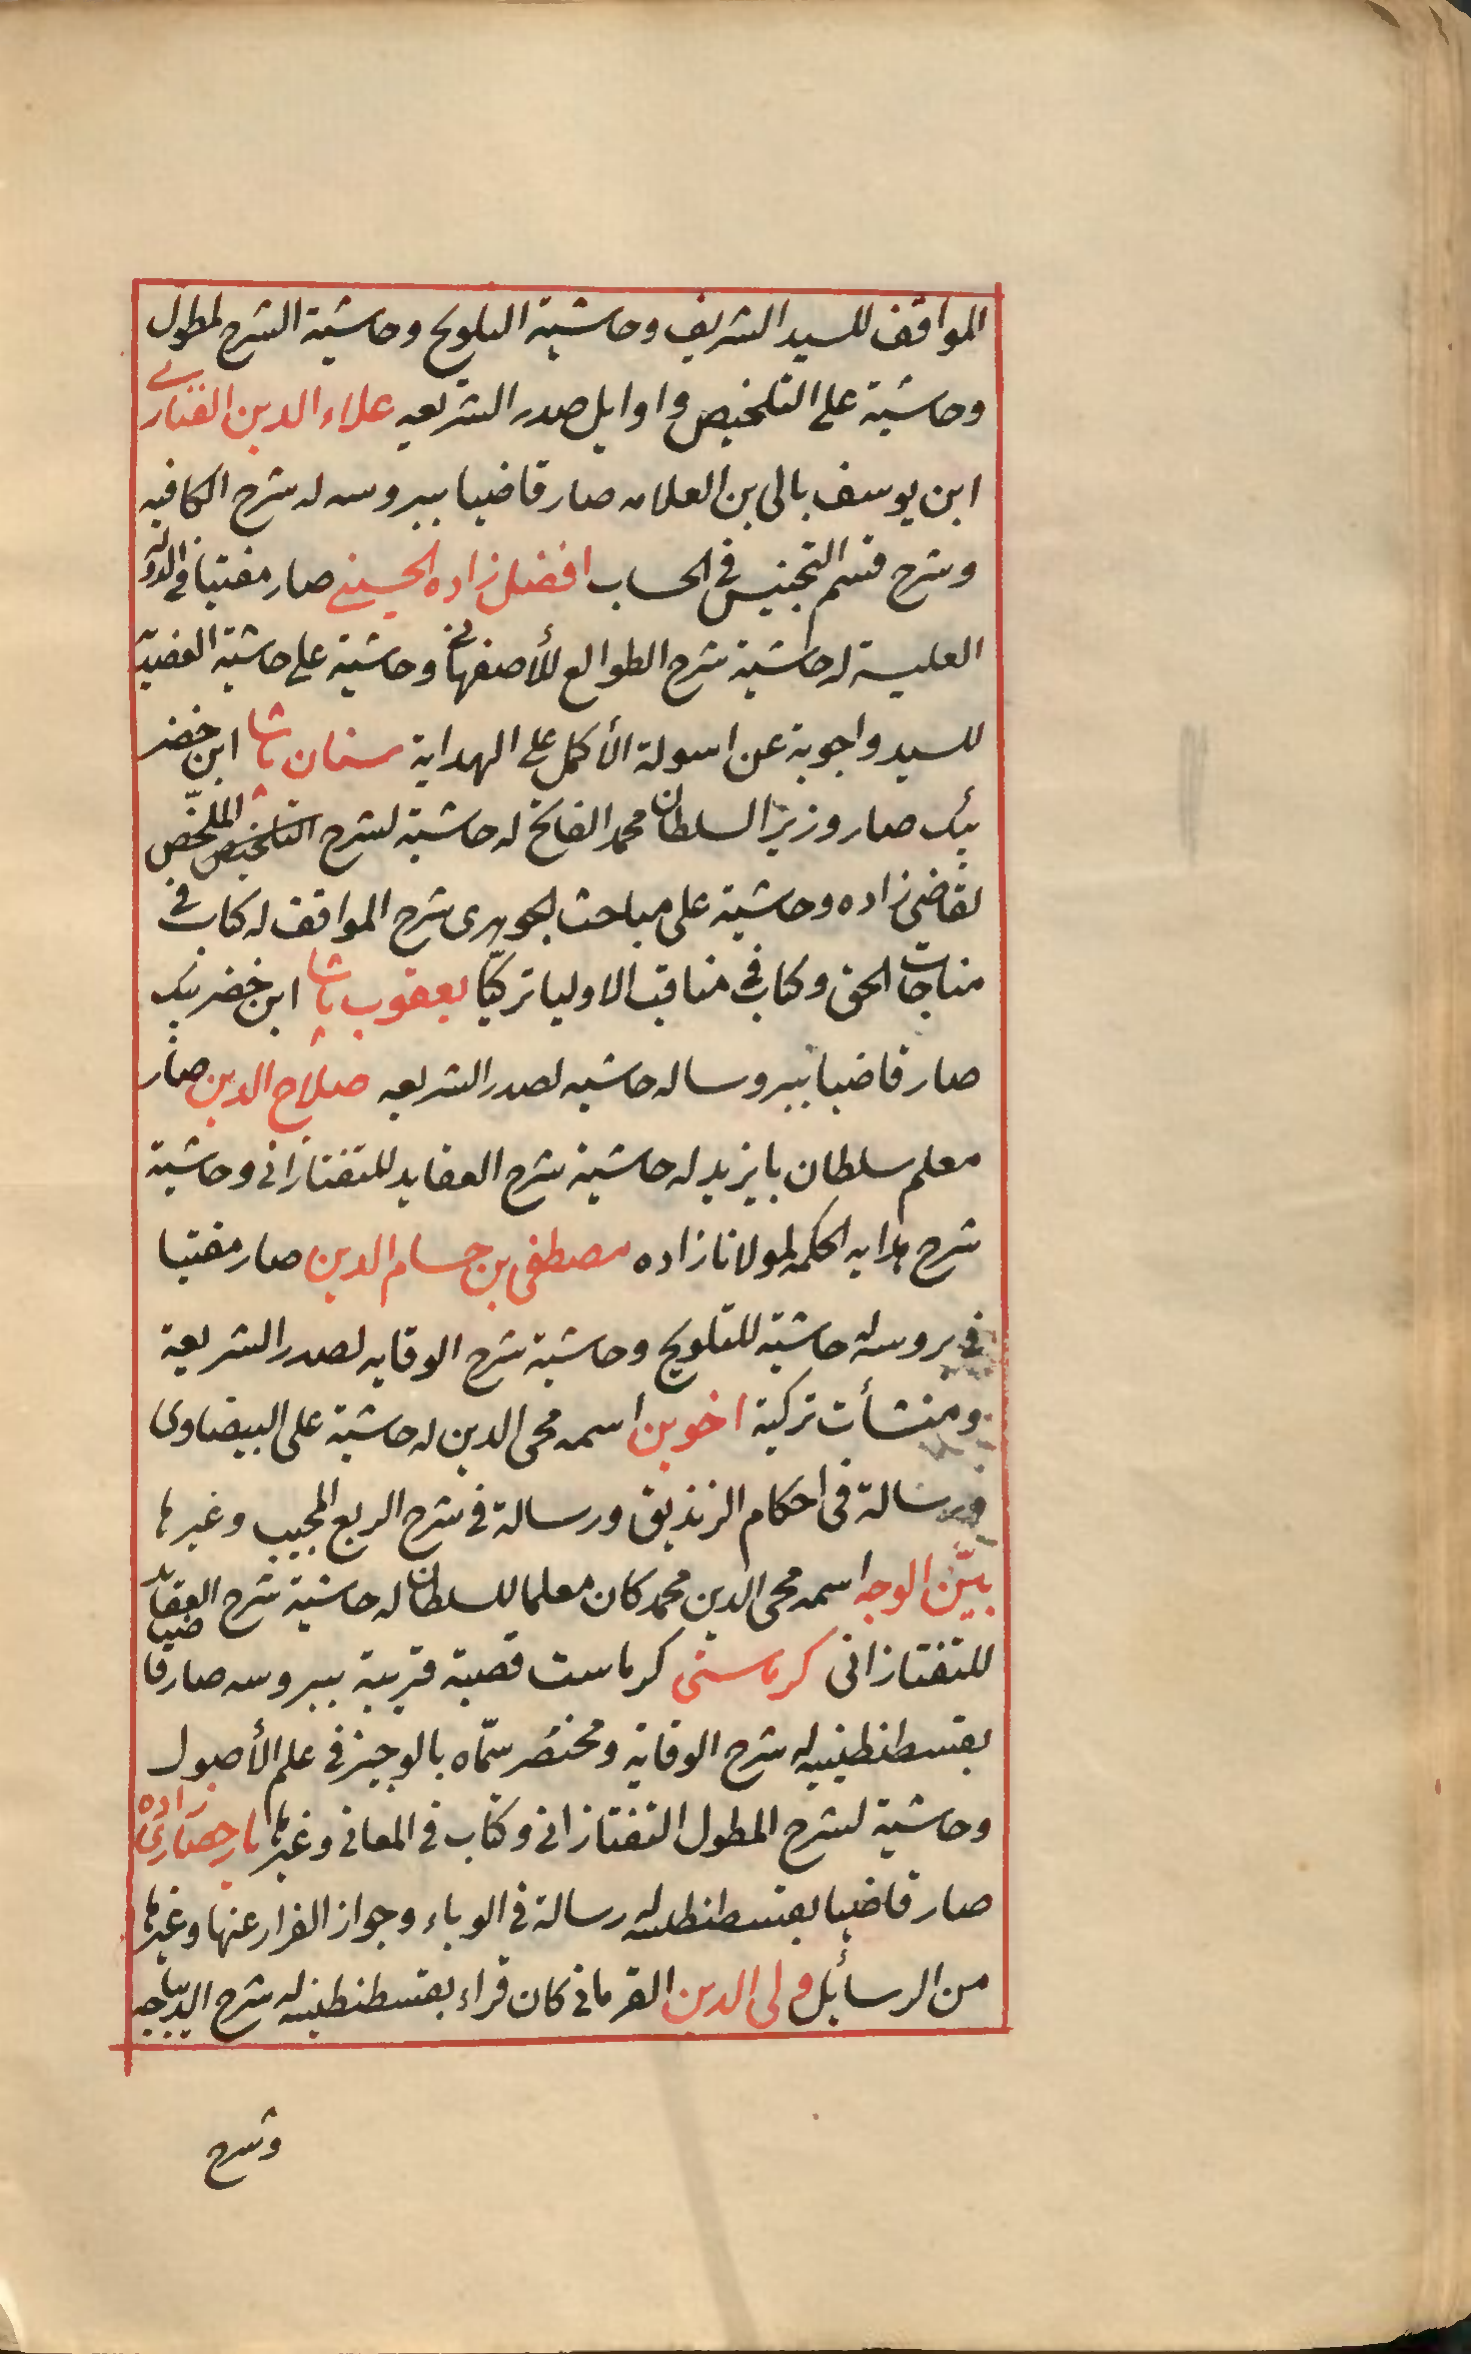 المواقف للسيد الشريف وحاشية التلويح وحاشية الشرح لمطول
وحاشية على التلخيص واوايل صدر الشريعه علاء الدين الفنارى
ابن يوسف بالى بن العلامه صار قاضيا ببروسه له شرح الكافيه
وشرح قسم التجنيس فى الحساب افضل زاده الحسينى صار مفتيا فى الدولة
العلية له حاشية شرح الطوالع للأصفهانى وحاشية على حاشية العضدية
للسيد واجوبة عن اسولة الأكمل على الهداية سنان پاشا ابن خضر
بيك صار وزيرا لسلطان محمد الفاتح له حاشية لشرح التلخيص الملخّص
لقاضى زاده وحاشية على مباحث الجوهرى شرح المواقف له كتاب فى
مناجات الحق وكتاب فى مناقب الاوليا تركيّا يعقوب پاشا ابن خضر بيك
صار قاضيا ببروسا له حاشيه لصدر الشريعه صلاح الدين صار
معلم سلطان بايزيد له حاشية شرح العقايد للتفتازانى وحاشية
شرح هدايه الحكمه لمولانا زاده مصطفى بن حسام الدين صار مفتيا
فى بروسه له حاشية للتلويح وحاشية شرح الوقايه لصدر الشريعة
ومنشأت تركية اخوين اسمه محى الدين له حاشية على البيضاوى
ورسالة فى احكام الزنديق ورسالة فى شرح الربع المجيب وغيرها
بيّن الوجه اسمه محى الدين محمد كان معلما للسلطان له حاشية شرح العقايد
للتفتازانى كرماستى كرماست قصبة قريبة ببروسه صار قاضيا
بقسطنطينيه له شرح الوقاية ومختصر سمّاه بالوجيز فى علم الأصول
وحاشية لشرح المطول التفتازانى وكتاب فى المعانى وغيرها يار حصارى زاده
صار قاضيا بقسطنطينيه له رسالة فى الوباء وجواز الفرار عنها وغيرها
من الرسائل ولى الدين القرمانى كان قراء بقسطنطينيه له شرح الديباجه
وشرح